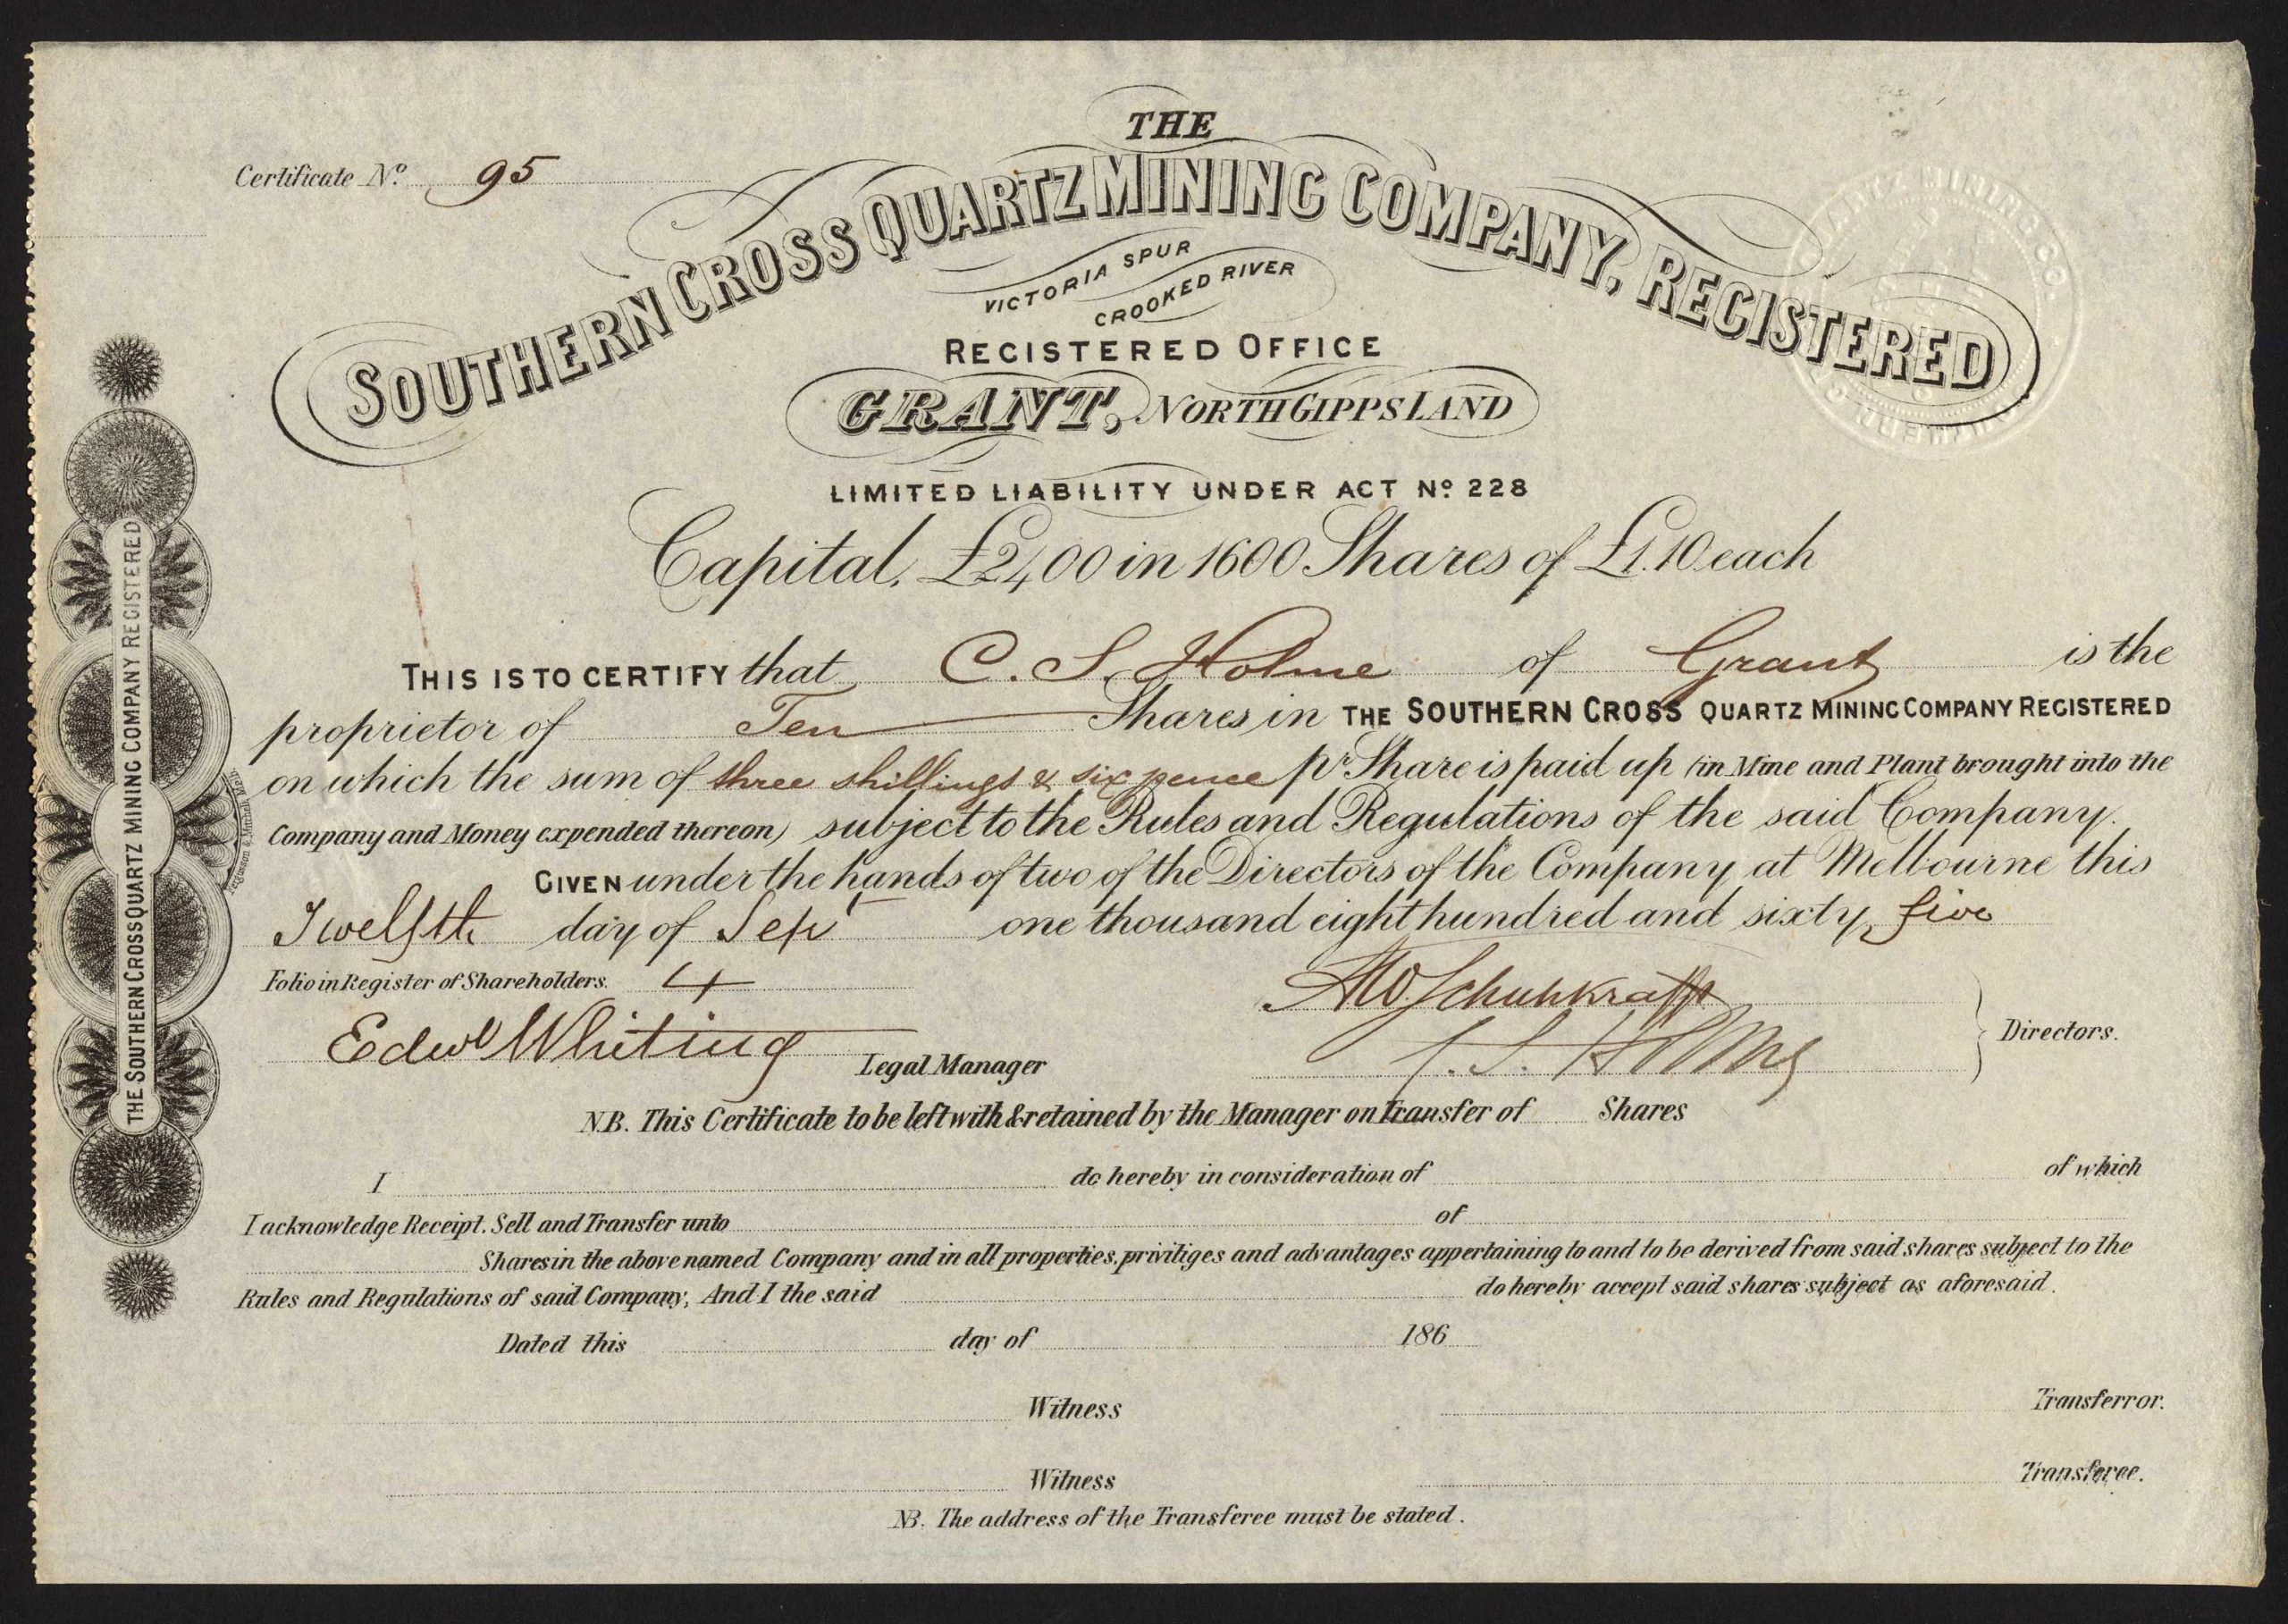 Certificate No. 95
THE
SOUTHERN CROSS QUARTZ MINING COMPANY, REGISTERED
VICTORIA SPUR
CROOKED RIVER
REGISTERED OFFICE
GRANT, NORTH GIPPSLAND
LIMITED LIABILITY UNDER ACT No. 228
Capital, £2400 in 1600 Shares of £1.10 each
THIS IS TO CERTIFY that C. S. Holme of Grant is the
proprietor of Ten Shares in THE SOUTHERN CROSS QUARTZ MINING COMPANY REGISTERED
on which the sum of three shillings & six pence pr Share is paid up (in Mine and Plant brought into the
Company and Money expended thereon) subject to the Rules and Regulations of the said Company.
GIVEN under the hands of two of the Directors of the Company at Melbourne this
Twelfth day of Sept one thousand eight hundred and sixty five
Folio in Register of Shareholders. 4
Edwd Whiting Legal Manager
A W Schuhkrafft
C. S. Holme
Directors.
N.B. This Certificate to be left with & retained by the Manager on Transfer of Shares
I do hereby in consideration of of which
I acknowledge Receipt. Sell and Transfer unto of
Shares in the above named Company and in all properties, priviliges and advantages appertaining to and to be derived from said shares subject to the
Rules and Regulations of said Company, And I the said do hereby accept said shares subject as aforesaid.
Dated this day of 186
Witness Transferror.
Witness Transferee.
NB. The address of the Transferee must be stated.
THE SOUTHERN CROSS QUARTZ MINING COMPANY REGISTERED
QUARTZ MINING CO.